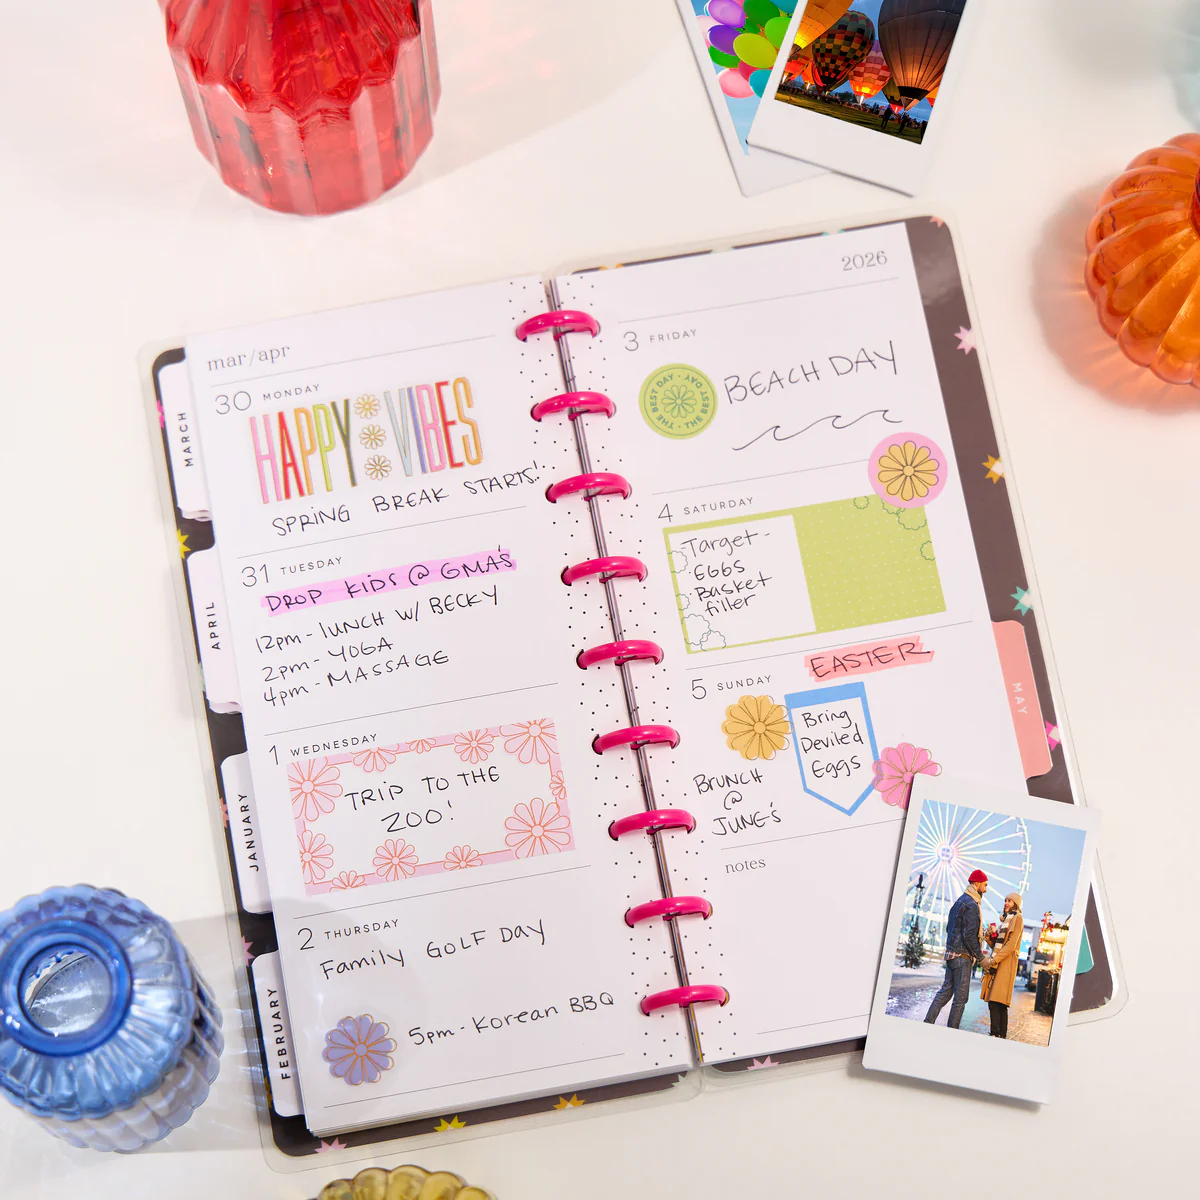 mar/apr
30 MONDAY
HAPPY VIBES
SPRING BREAK STARTS!
31 TUESDAY
DROP KIDS @ GMA'S
12pm - LUNCH W/ BECKY
2pm - YOGA
4pm - MASSAGE
1 WEDNESDAY
TRIP TO THE
ZOO!
2 THURSDAY
Family GOLF Day
5pm - Korean BBQ
2026
3 FRIDAY
THE BEST DAY • THE BEST DAY •
BEACH DAY
4 SATURDAY
Target -
• EGGS
• Basket
filler
EASTER
5 SUNDAY
Bring
Deviled
Eggs
BRUNCH
@
JUNE'S
notes
MARCH
APRIL
JANUARY
FEBRUARY
MAY